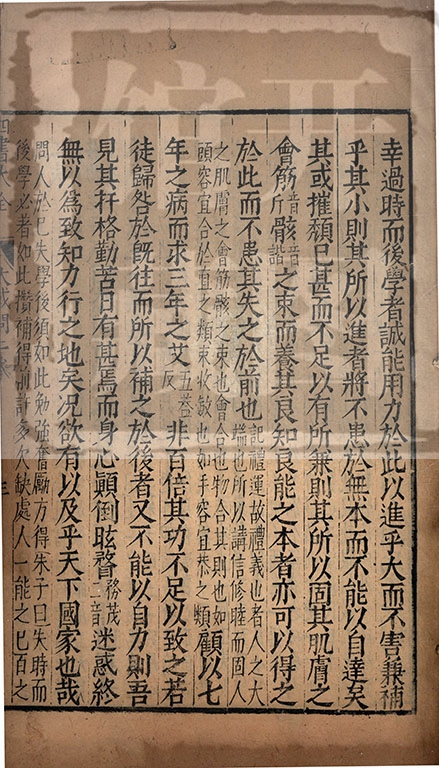 幸過時而後學者誠能用力於此以進乎大而不害兼補
乎其小則其所以進者將不患於無本而不能以自達矣
其或摧頹已甚而不足以有所兼則其所以固其肌膚之
會筋音斤骸音諧之束而養其良知良能之本者亦可以得之
於此而不患其失之於前也記禮運故禮義也者人之大
端也所以講信修睦而固人
之肌膚之會筋骸之束也會合也物合其則也如
頭容宜合於直之類束收斂也如手容宜恭之類顧以七
年之病而求三年之艾五葢反非百倍其功不足以致之若
徒歸咎於既往而所以補之於後者又不能以自力則吾
見其扞格勤苦日有甚焉而身心顛倒眩瞀務茂二音迷惑終
無以爲致知力行之地矣况欲有以及乎天下國家也哉
問人於已失學後須如此勉強奮勵方得朱子曰失時而
後學必著如此趲補得前許多欠缺處人一能之已百之
四書大全
大或問
三